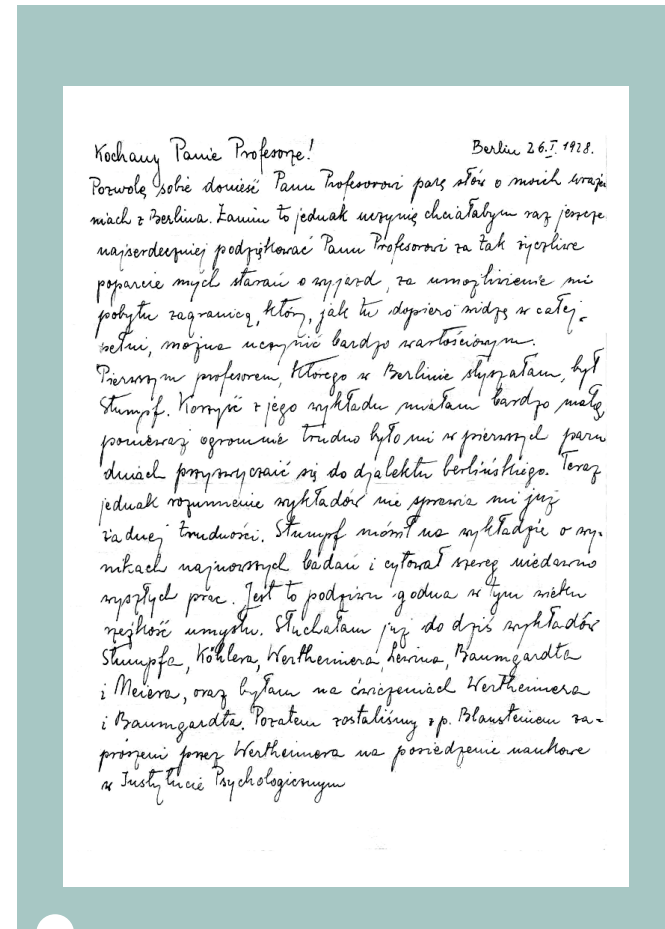 Kochany Panie Profesorze!
Berlin 26.I.1928.
Pozwolę sobie donieść Panu Profesorowi parę słów o moich wraże
niach z Berlina. Zanim to jednak uczynię chciałabym raz jeszcze
najserdeczniej podziękować Panu Profesorowi za tak życzliwe
poparcie mych starań o wyjazd, za umożliwienie mi
pobytu zagranicą, który, jak tu dopiero widzę w całej
pełni, można uczynić bardzo wartościowym.
Pierwszym profesorem, którego w Berlinie słyszałam, był
Stumpf. Korzyść z jego wykładu miałam bardzo małą,
ponieważ ogromnie trudno było mi w pierwszych paru
dniach przyzwyczaić się do djalektu berlińskiego. Teraz
jednak rozumienie wykładów nie sprawia mi już
żadnej trudności. Stumpf mówił na wykładzie o wy-
nikach najnowszych badań i cytował szereg niedawno
wyszłych prac. Jest to podziwu godna w tym wieku
rzeźkość umysłu. Słuchałam już do dziś wykładów
Stumpfa, Köhlera, Wertheimera, Lewina, Baumgardta
i Meiera, oraz byłam na ćwiczeniach Wertheimera
i Baumgardta. Pozatem zostaliśmy z p. Blausteinem za-
proszeni przez Wertheimera na posiedzenie naukowe
w Instytucie Psychologicznym